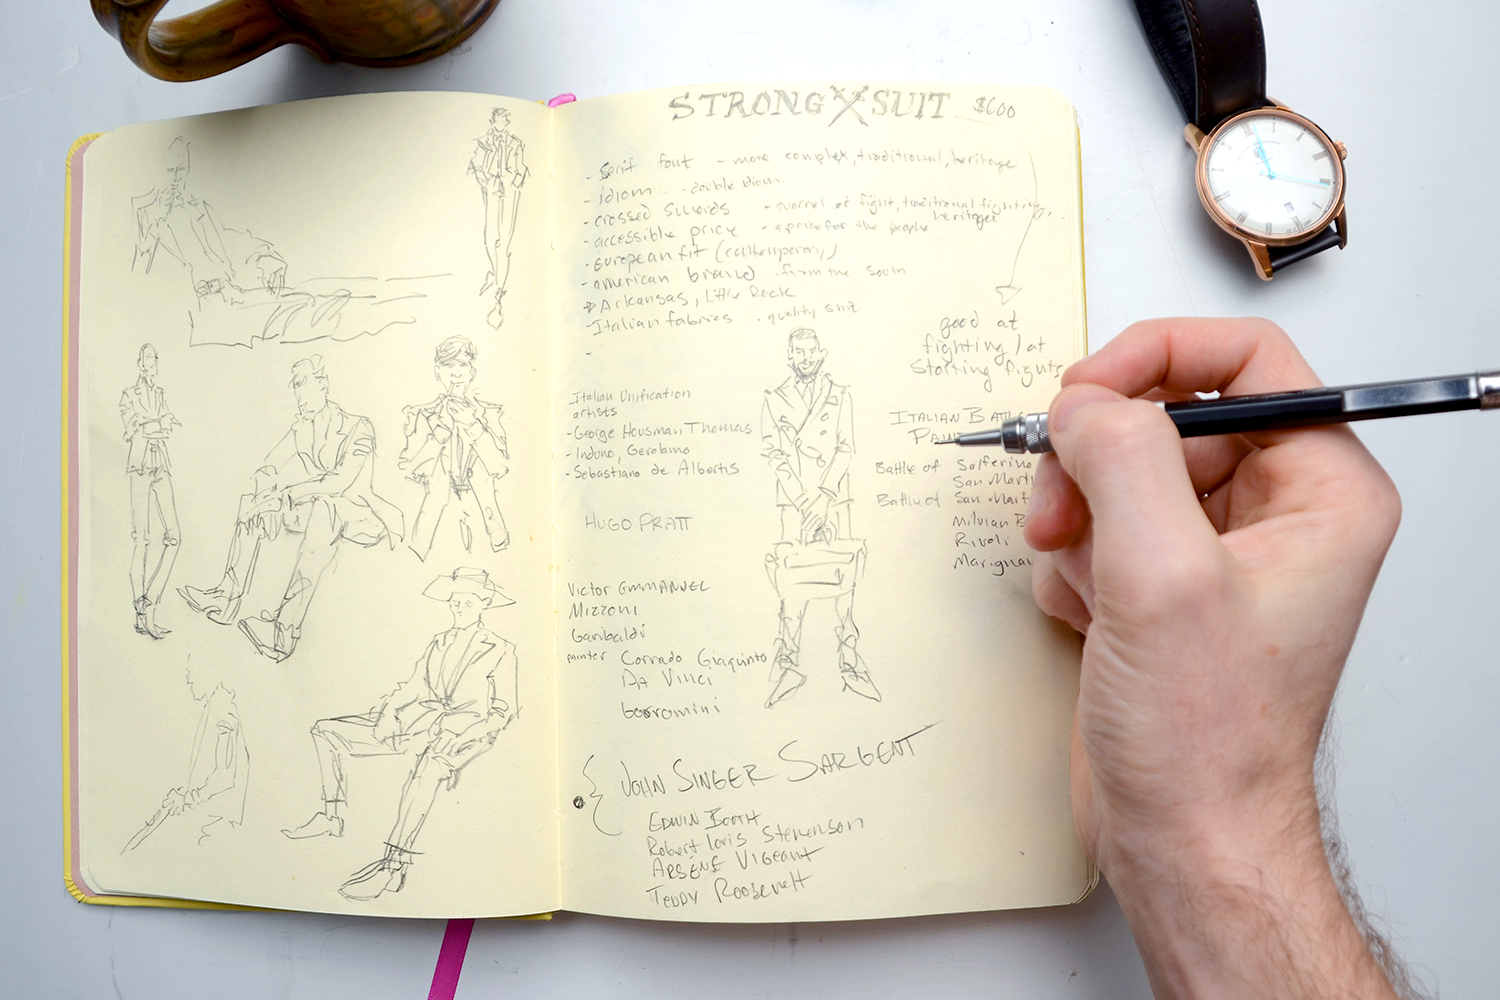 STRONG SUIT $600
- Serif font - more complex, traditional, heritage
- idiom - double idiom
- crossed swords - quarrel or fight, traditional fighting,
heritage
- accessible price - a price for the people
- European fit (contemporary)
- american brand - from the south
Arkansas, Little Rock
- Italian fabrics - quality suit
-
good at
fighting / at
starting fights
Italian Unification
artists
- George Housman Thomas
- Induno, Gerolamo
- Sebastiano de Albertis
HUGO PRATT
Victor EMMANUEL
Mizzoni
Garibaldi
painter Corrado Giaquinto
DA Vinci
borromini
ITALIAN
Battle of Solferino
San
Battle of San
Milvian
Rivoli
JOHN SINGER SARGENT
EDWIN BOOTH
Robert Louis Stevenson
ARSÈNE VIGEANT
TEDDY ROOSEVELT